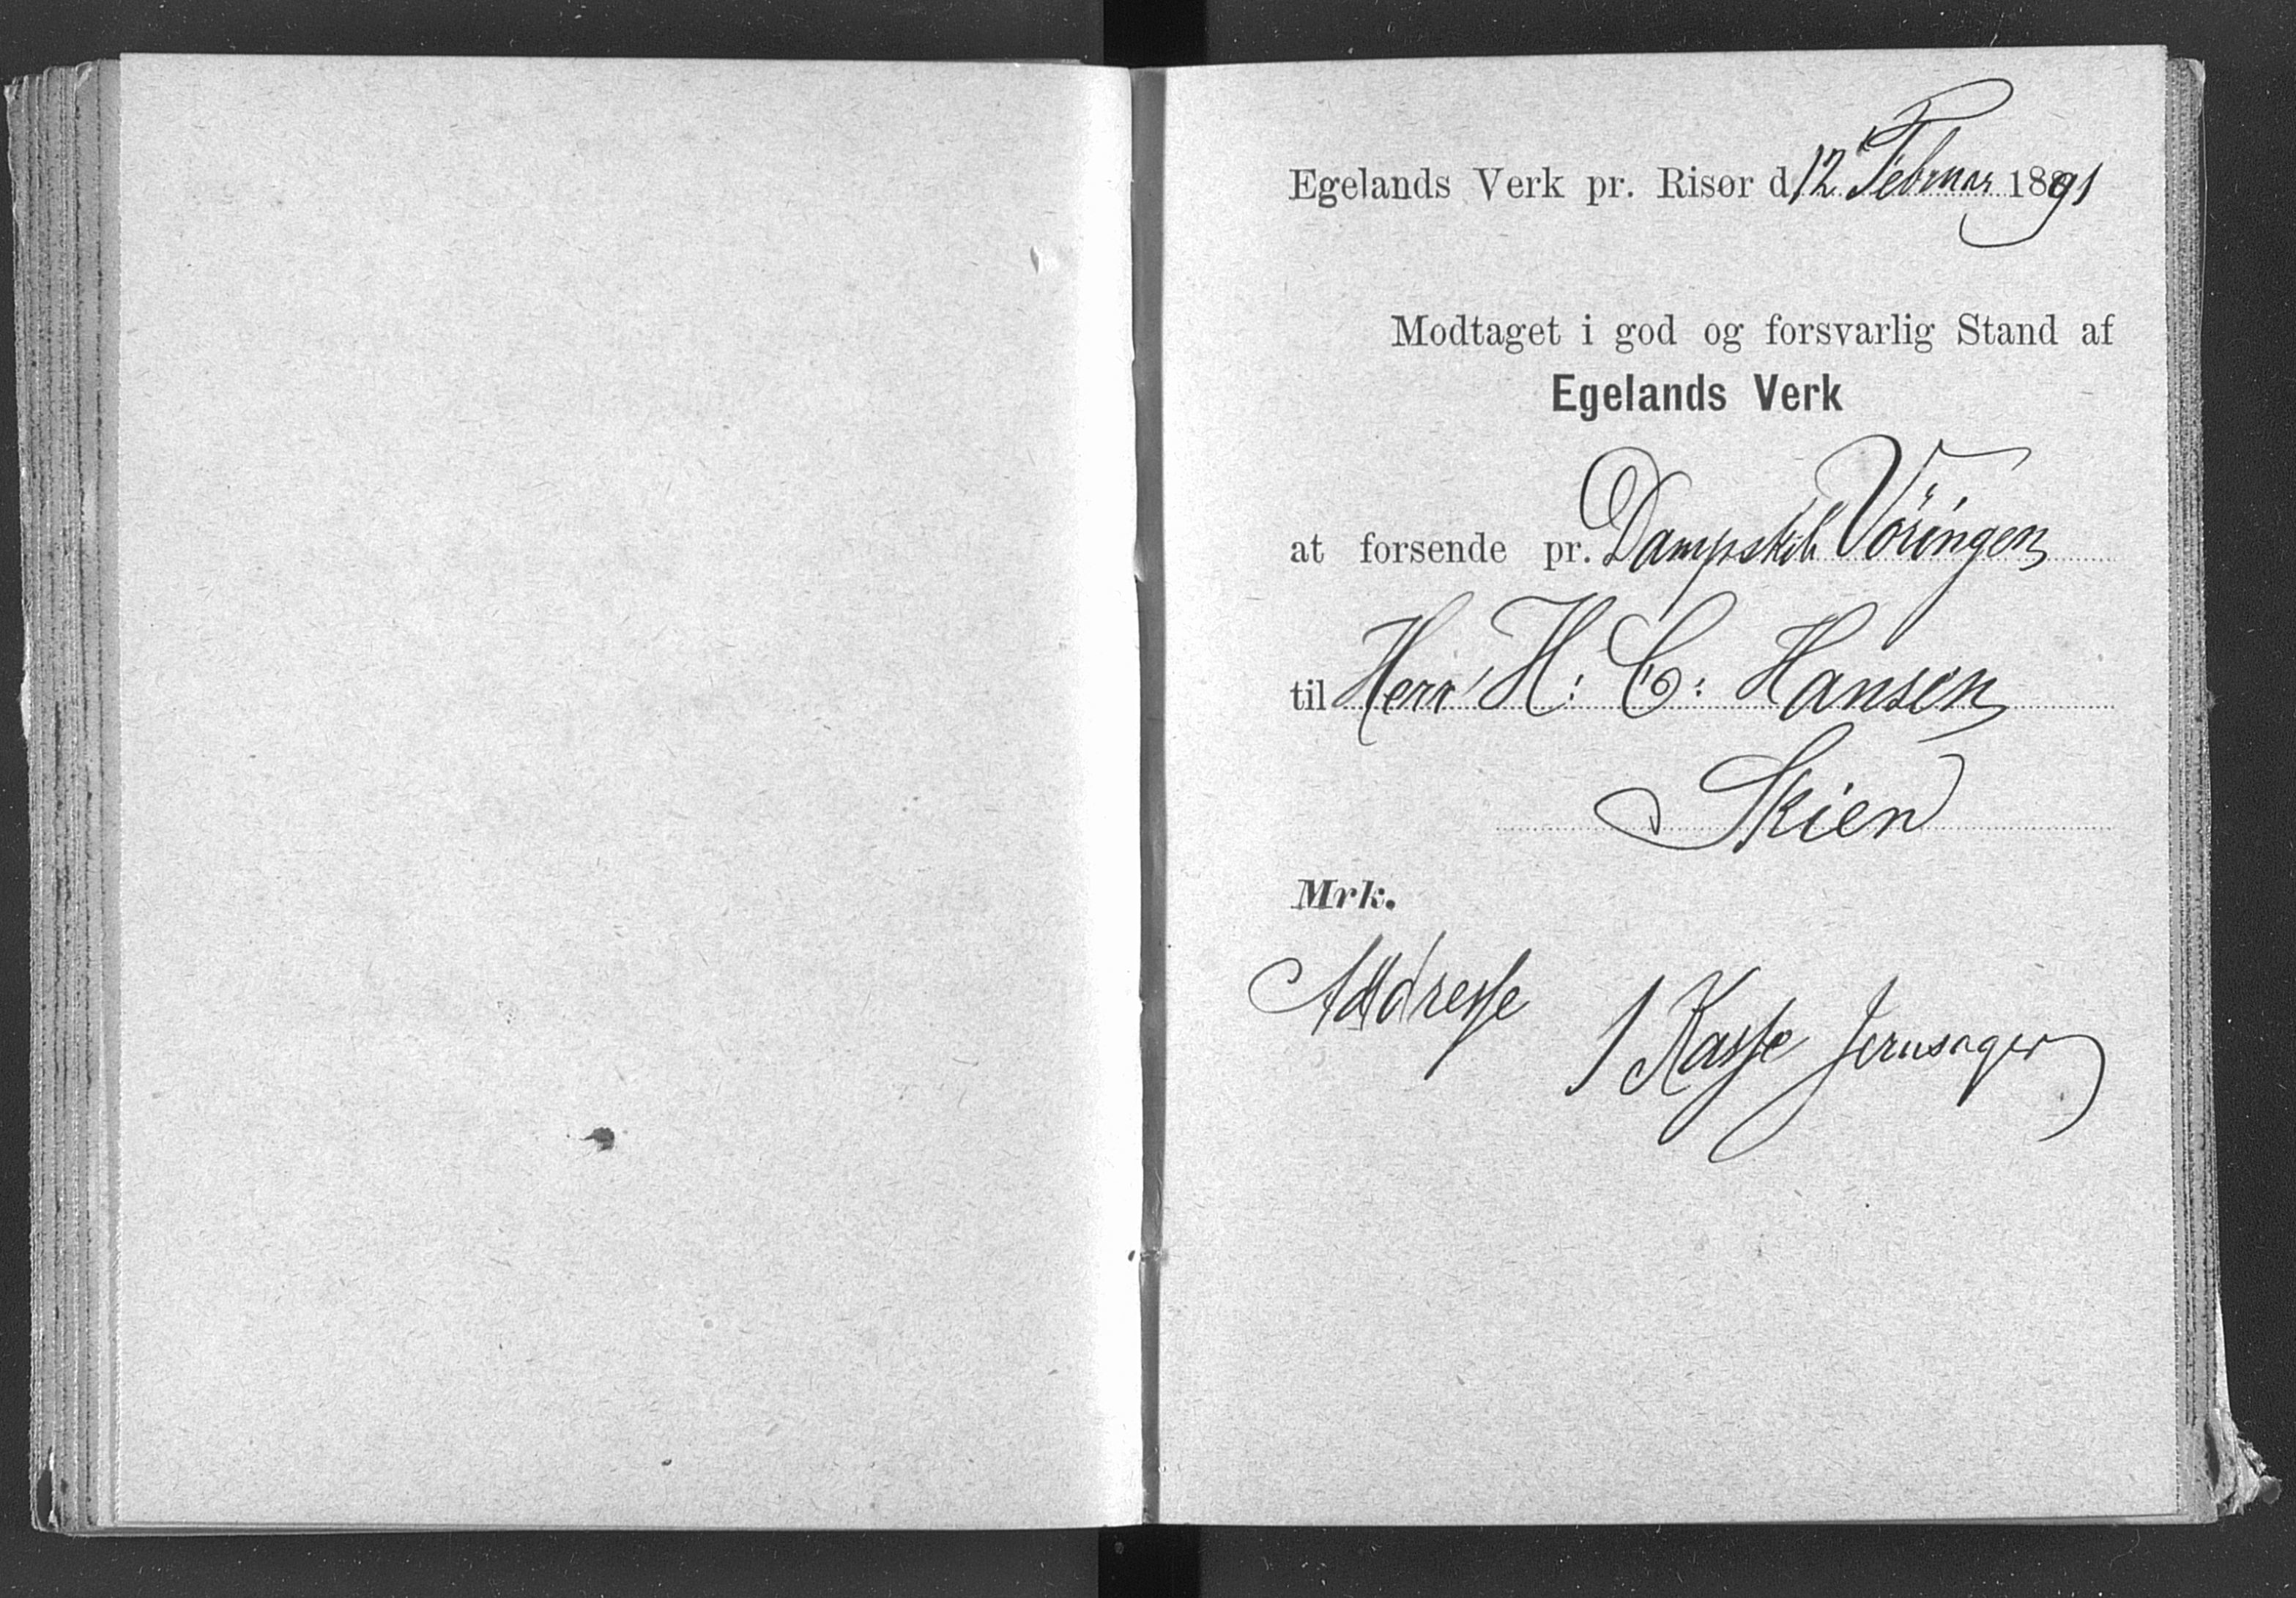 Egelands Verk pr. Risør d. 12 Februar 1891
Modtaget i god og forsvarlig Stand af
Egelands Verk
at forsende pr. Dampskib Vöringen
til Herr H: C: Hansen
Skien
Mrk.
Addresse
1 Kasse Jernsager